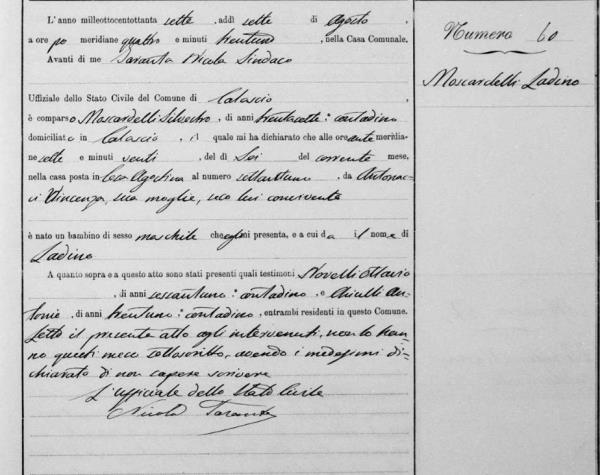 L'anno milleottocentottanta sette, addì sette di Agosto,
a ore po meridiane quattro e minuti trentuno, nella Casa Comunale.
Avanti di me Taranta Nicola Sindaco
Uffiziale dello Stato Civile del Comune di Calascio,
è comparso Moscardelli Silvestro, di anni trentasette: contadino
domiciliato in Calascio, il quale mi ha dichiarato che alle ore ante meridia-
ne sette e minuti venti, del dì Sei del corrente mese,
nella casa posta in Agostina al numero settantuno, da Antonac-
ci Vincenza, sua moglie, seco lui convivente
è nato un bambino di sesso maschile che egli mi presenta, e a cui dà il nome di
Ladino
A quanto sopra e a questo atto sono stati presenti quali testimoni Novelli Ottavio
, di anni sessantuno: contadino, e Chiulli An-
tonio, di anni trentuno: contadino, entrambi residenti in questo Comune.
Letto il presente atto agli intervenuti, non lo han-
no questi meco sottoscritto, avendo i medesimi di-
chiarato di non sapere scrivere
L'uffiziale dello Stato Civile
Nicola Taranta
Numero 60
Moscardelli Ladino